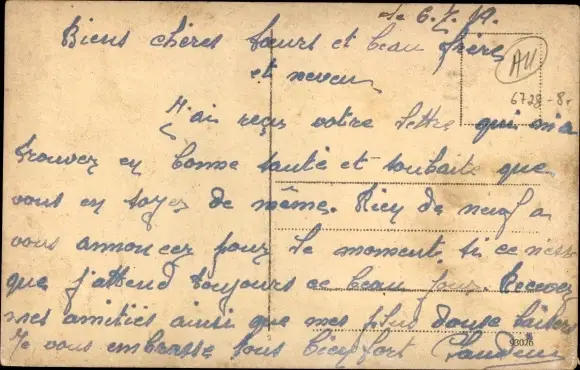 le 6.7.19.
Biens chères sœurs et beau frère
et neveu
AU
6728-8.
J'ai reçus votre lettre qui m'a
trouver en bonne santé et souhaite que
vous en soyez de même. Rien de neuf a
vous annoncer pour le moment. Si ce n'est
que j'attend toujours ce beau jour. Recevez
mes amitiés ainsi que mes plus doux baisers
Je vous embrasse tous bien fort
93076